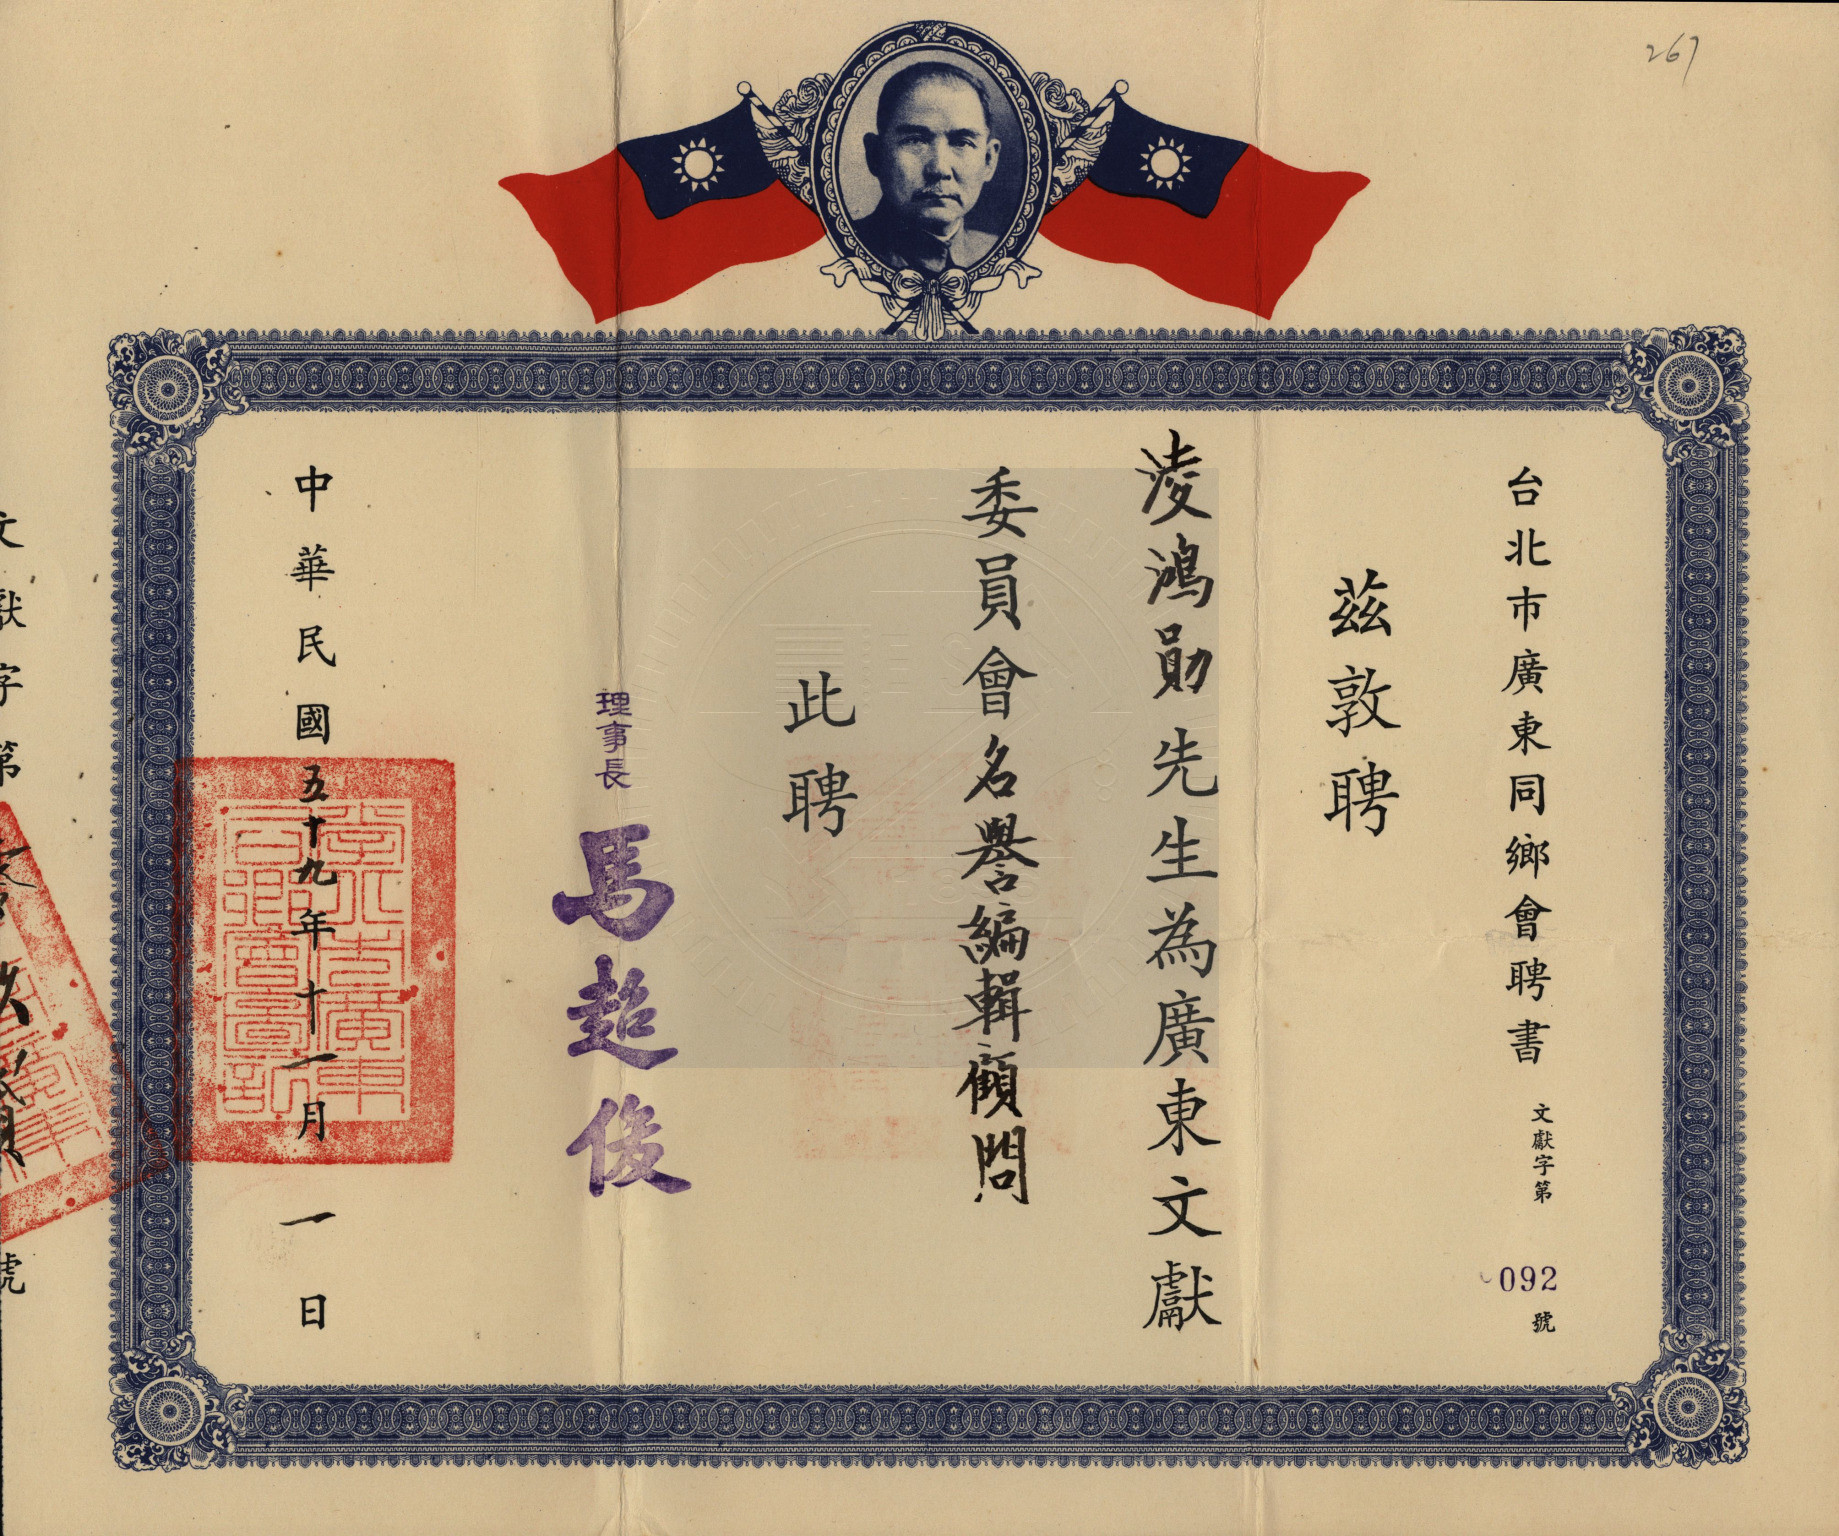 267
台北市廣東同鄉會聘書
文獻字第
092
號
茲敦聘
淩鴻勛先生為廣東文獻
委員會名譽編輯顧問
此聘
理事長
馬超俊
中華民國五十九年十一月一日
文獻字第
號